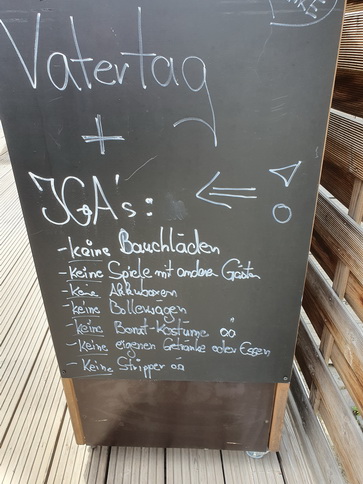 Vatertag
+
JGA's:
- keine Bauchläden
- keine Spiele mit anderen Gästen
- keine Akkuboxen
- keine Bollewagen
- keine Borat-Kostüme öö
- keine eigenen Getränke oder Essen
- Keine Stripper öö